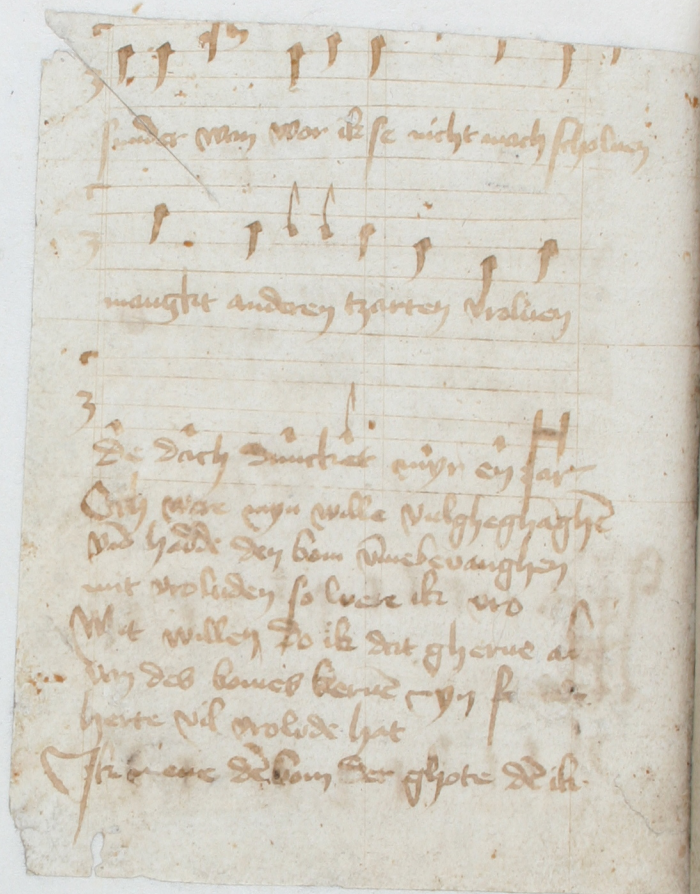 sunder wan wor ik se nicht mach scholuen
mangkt anderen tzarten vrolven
De dach duncket myn en Jar
Och were myn wille vulgheghaghē
vnd hadde den bom vmebevanghen
mit vroluden so were ik vro
Mit willen do ik dat gherne
van des bomes kernē myn
herte vil vrolude hat
Ik meyne dē bom der ghote dē ik